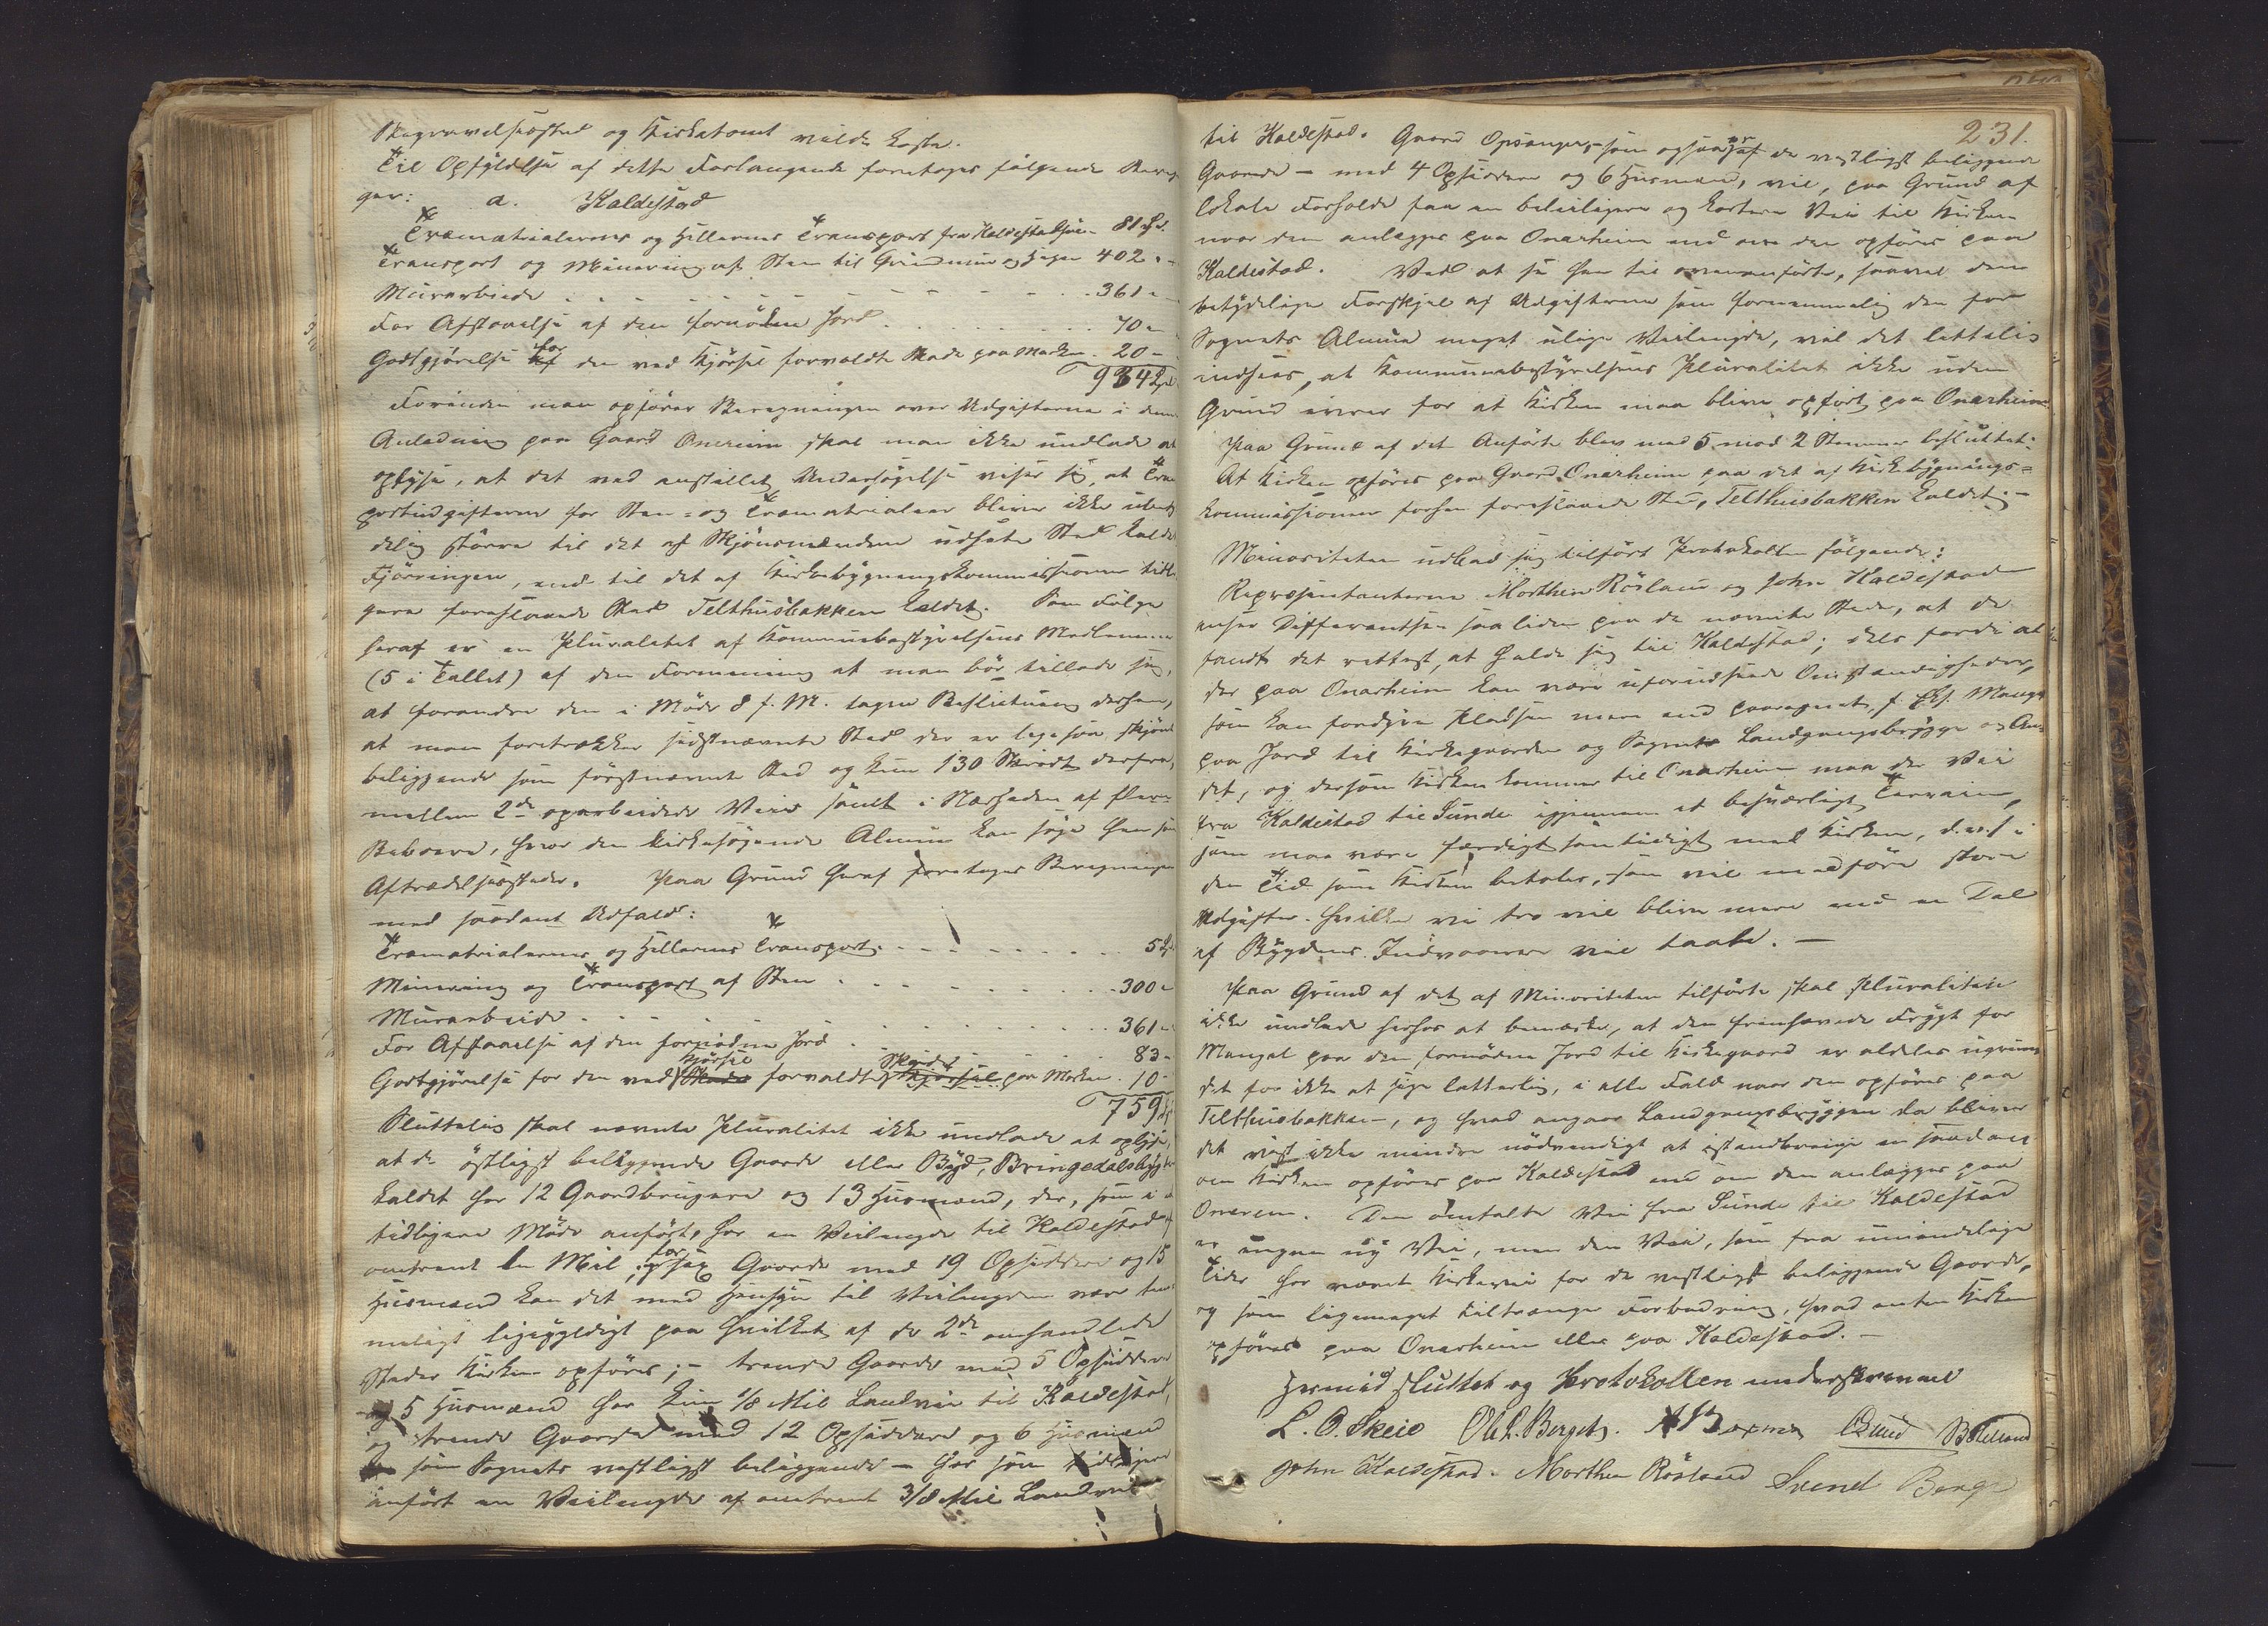 Begravelsessted og Kirketomt vilde koste.
Til Opfyldelse af dette Forlangende foretages følgende Bereg
ger: a. Kaldestad
Træmaterialernes og Hellernes Transport fra Kaldestadsøen 81 Spd.
Transport og Minering af Sten til Grundmur og Hegn 402 "
Murarbeide 361 "
For Afstaaelse af den fornødne Jord 70 "
Godtgjørelse for den ved Kjørsel forvoldte Skade paa Marken 20 "
934 Spd
Forinden man opfører Beregningen over Udgifterne i den
Anledning paa Gaard Onereim skal man ikke undlade at
oplyse, at det ved anstillet Undersøgelse viser sig, at Trans
portudgifterne for Sten- og Træmaterialier bliver ikke ubety
delig større til det af Skjønsmændene udsete Sted kaldet
Fjørringen, end til det af Kirkebygningskommissionen tidli
gere foreslaaede Sted Telthusbakken kaldet. Som Følge
heraf er en Pluralitet af Kommunebestyrelsens Medlemmer
(5 i Tallet) af den Formening at man bør tillade sig,
at forandre den i Møde 8 f. M. tagne Beslutning derhen,
at man foretrækker sidstnævnte Sted der er ligesaa skjønt
beliggende som førstnævnte Sted og kun 130 Skridt derfra,
mellem 2de oparbeidede Veie samt i Nærheden af flere
Beboere, hvor den kirkesøgende Almue kan søge hen som
Aftrædelsessteder. Paa Grund heraf foretages Beregningen
med saadant Udfald:
Træmaterialernes og Hellernes Transport 5 Spd
Minering og Transport af Sten 300 "
Murarbeide 361 "
For Afstaaelse af den fornødne Jord 83 "
Godtgjørelse for den ved Kjørsel forvoldte Skade paa Marken 10 "
759 Spd
Sluttelig skal nævnte Pluralitet ikke undlade at oplyse,
at de østligst beliggende Gaarde eller Bygd, Bringedalsbygden
kaldet har 12 Gaardbrugere og 13 Husmænd, der, som i et
tidligere Møde anført, har en Veilengde til Kaldestad af
omtrent en Mil; for sex Gaarde med 19 Opsiddere og 15
Husmænd kan det med Hensyn til Veilengden være tem
meligt ligegyldigt paa hvilket af de 2de omhandlede
Steder Kirken opføres; - trende Gaarde med 5 Opsiddere
og 5 Husmænd har kun 1/8 Mil Landvei til Kaldestad,
og trende Gaarde med 12 Opsiddere og 6 Husmænd
som Sognets vestligst beliggende - har som tidligere
anført en Veilengde af omtrent 3/8 Mil Landvei
231.
til Kaldestad. Gaard Opsanger, som ogsaa er af de vestligst beliggende
Gaarde - med 4 Opsiddere og 6 Husmænd, vil, paa Grund af
lokale Forholde faa en beleiligere og kortere Vei til Kirken
naar den anlægges paa Onarheim end om den opføres paa
Kaldestad. Ved at se hen til ovenanførte, saavel den
betydelige Forskjel af Udgifterne som fornemmelig den for
Sognets Almue meget ulige Veilengde, vil det lettelig
indsees, at Kommunebestyrelsens Pluralitet ikke uden
Grund ivrer for at Kirken maa blive opført paa Onarheim.
Paa Grund af det Anførte blev med 5 mod 2 Stemmer besluttet:
At Kirken opføres paa Gaard Onarheim paa det af Kirkebygnings-
kommissionen forhen foreslaaede Sted, Telthusbakken kaldet. -
Minoriteten udbad sig tilført Protokollen følgende:
Repræsentanterne Morthen Røsland og John Kaldestad
anser Differentsen saa liden paa de nævnte Steder, at de
fandt det rettest, at holde sig til Kaldestad; dels fordi at
der paa Onarheim kan være uforudseede Omstændigheder,
som kan fordyre Pladsen mere end paaregnet, f. Ex. Mangel
paa Jord til Kirkegaarden og Sognets Landgangsbrygge og An
det, og dersom Kirken kommer til Onarheim maa der Vei
fra Kaldestad til Sunde igjennem et besværligt Terrain,
som maa være færdigt samtidigt med Kirken, d. v. s. i
den Tid som Kirken betales, som vil medføre store
Udgifter. Hvilke vi tro vil blive mere end en Del
af Bygdens Indvaanere vil taale. -
Paa Grund af det af Minoriteten tilførte skal Pluraliteten
ikke undlade herhos at bemærke, at den fremhævede Frygt for
Mangel paa den fornødne Jord til Kirkegaard er aldeles ugrun
det for ikke at sige latterlig, i alle Fald naar den opføres paa
Telthusbakken -, og hvad angaar Landgangsbryggen da bliver
det vist ikke mindre nødvendigt at istandbringe en saadan
om Kirken opføres paa Kaldestad end om den anlægges paa
Onereim. Den omtalte Vei fra Sunde til Kaldestad
er ingen ny Vei, men den Vei, som fra umindelige
Tider har været Kirkevei for de vestligst beliggende Gaarde,
og som ligemeget tiltrænger Forbedring, hvad enten Kirken
opføres paa Onarheim eller paa Kaldestad. -
Hermed sluttet og Protokollen underskrevet
L. O. Skeie Ole L. Berget.
John Kaldestad. Morthen Røsland Svend Berge